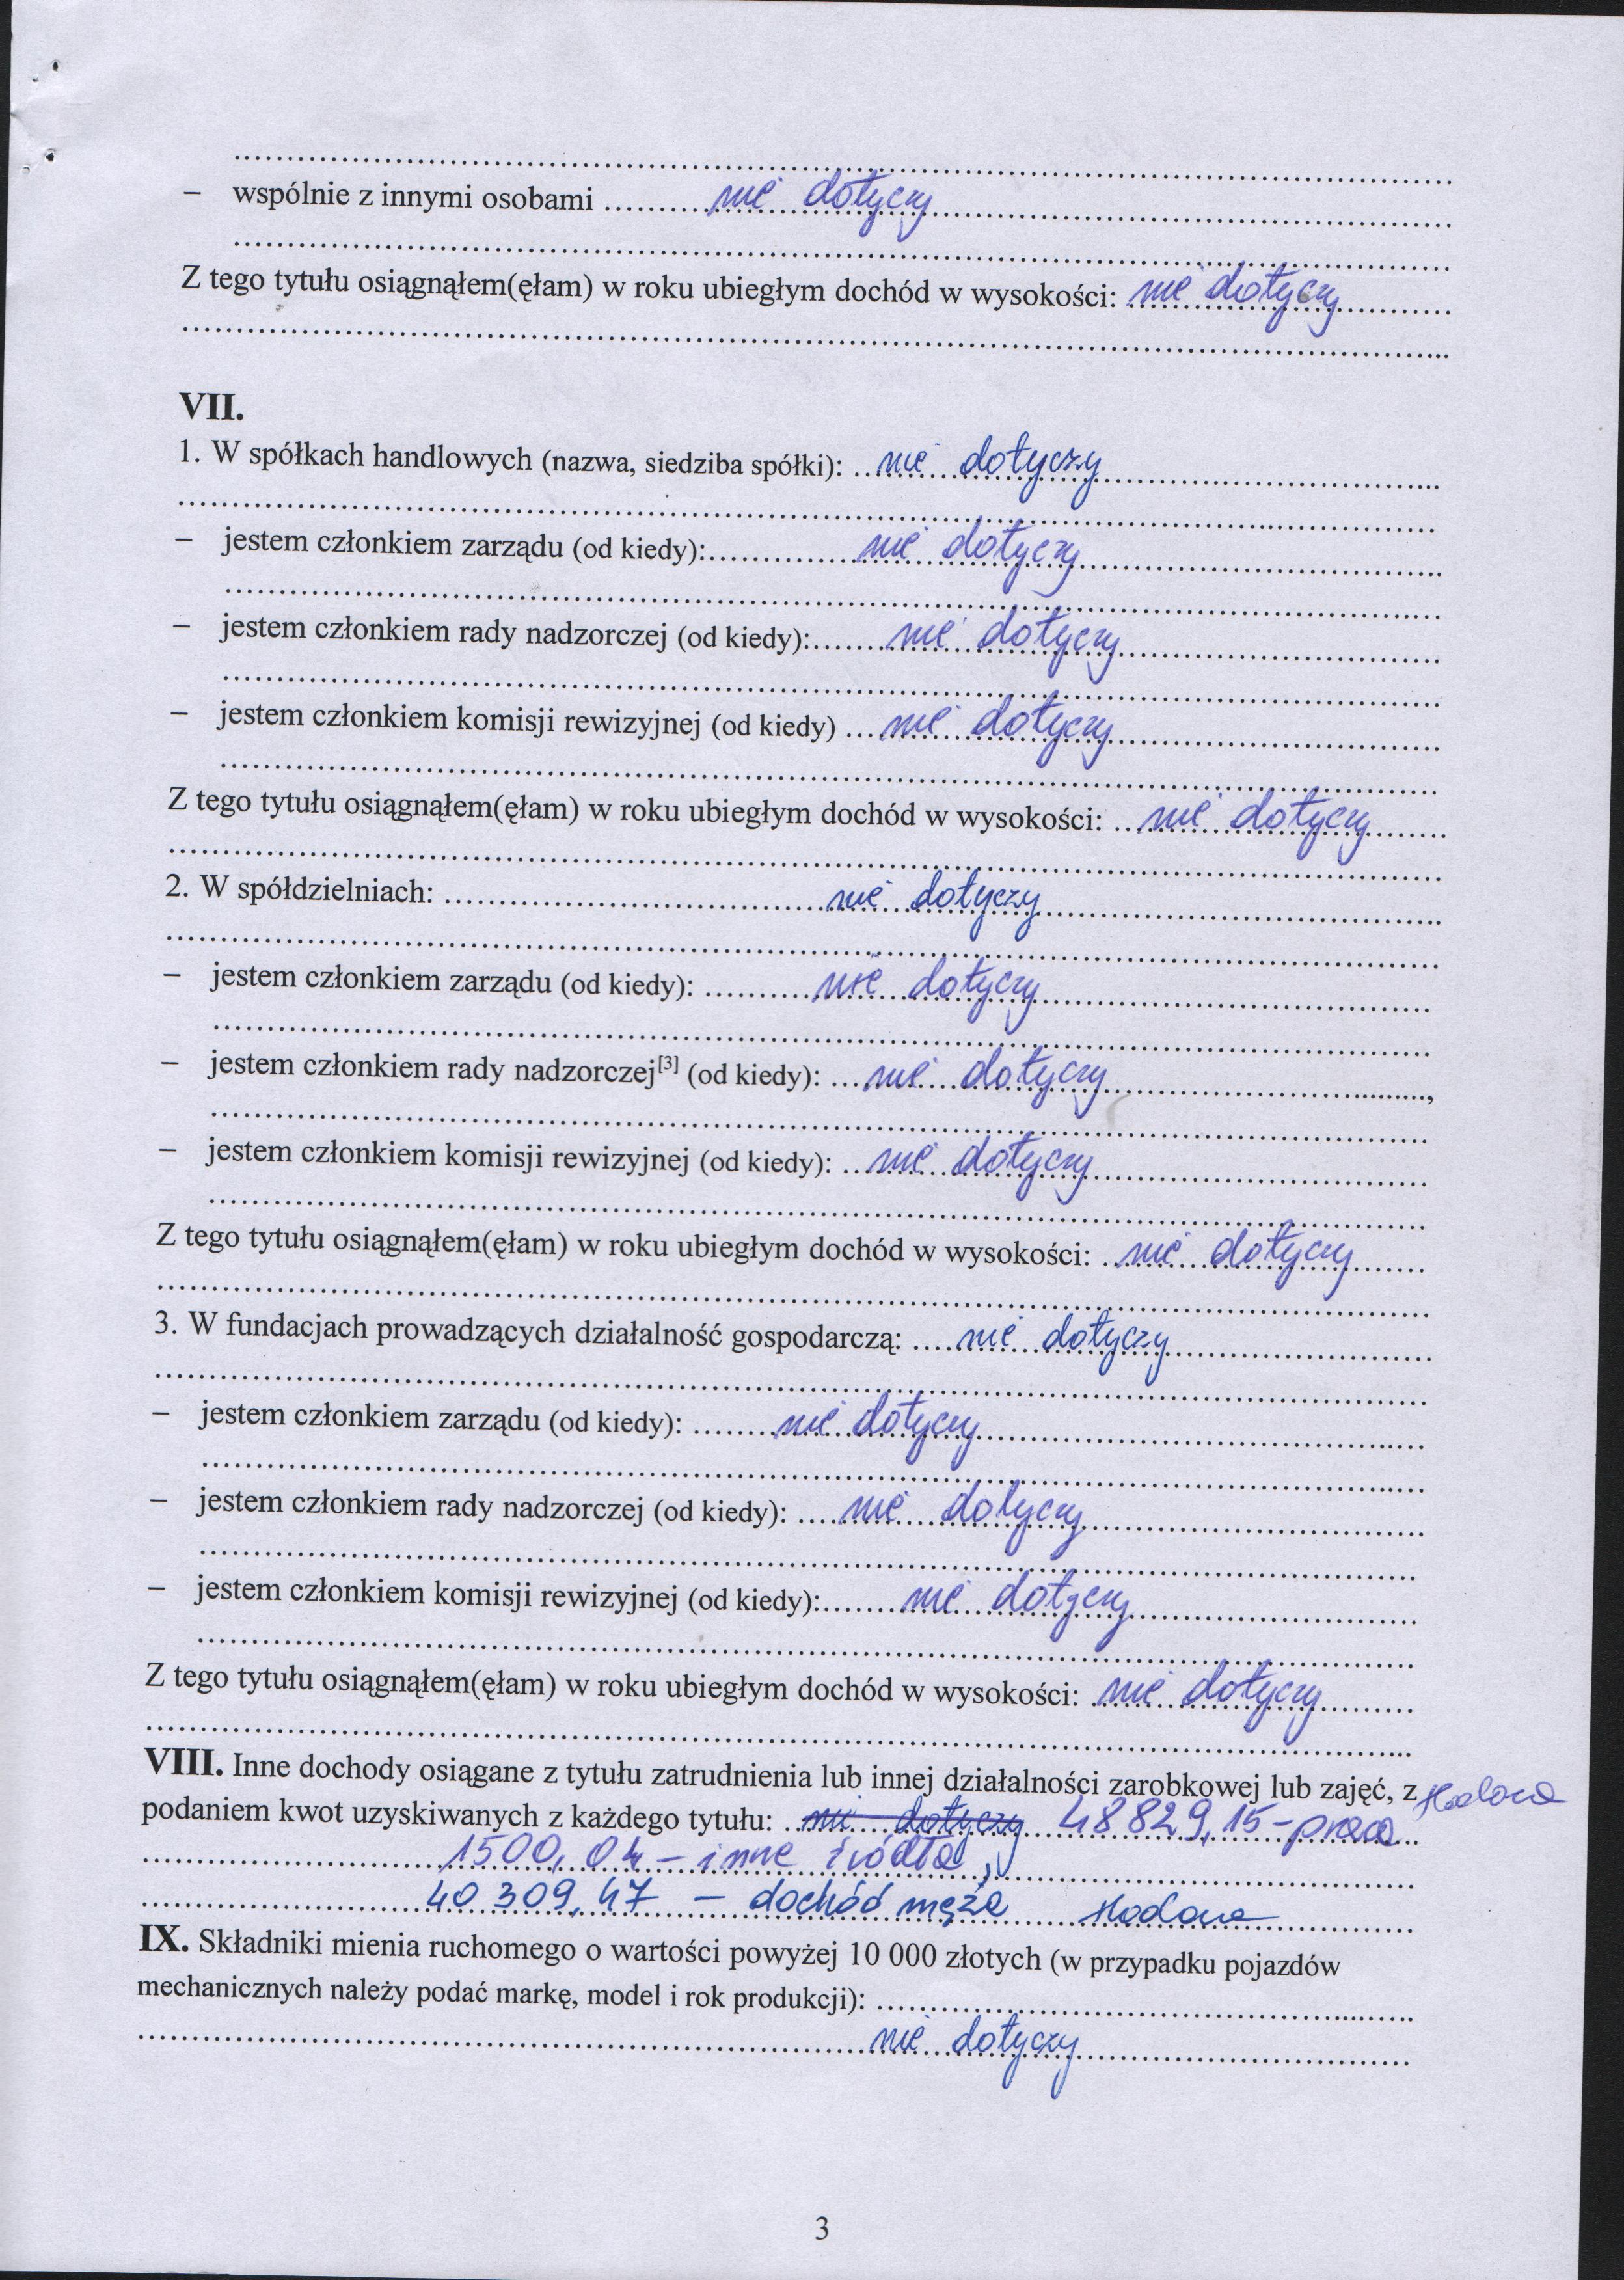 – wspólnie z innymi osobami ......... nie dotyczy
Z tego tytułu osiągnąłem(ęłam) w roku ubiegłym dochód w wysokości: nie dotyczy
VII.
1. W spółkach handlowych (nazwa, siedziba spółki): nie dotyczy
– jestem członkiem zarządu (od kiedy): nie dotyczy
– jestem członkiem rady nadzorczej (od kiedy): nie dotyczy
– jestem członkiem komisji rewizyjnej (od kiedy) nie dotyczy
Z tego tytułu osiągnąłem(ęłam) w roku ubiegłym dochód w wysokości: nie dotyczy
2. W spółdzielniach: nie dotyczy
– jestem członkiem zarządu (od kiedy): nie dotyczy
– jestem członkiem rady nadzorczej[3] (od kiedy): nie dotyczy,
– jestem członkiem komisji rewizyjnej (od kiedy): nie dotyczy
Z tego tytułu osiągnąłem(ęłam) w roku ubiegłym dochód w wysokości: nie dotyczy
3. W fundacjach prowadzących działalność gospodarczą: nie dotyczy
– jestem członkiem zarządu (od kiedy): nie dotyczy
– jestem członkiem rady nadzorczej (od kiedy): nie dotyczy
– jestem członkiem komisji rewizyjnej (od kiedy): nie dotyczy
Z tego tytułu osiągnąłem(ęłam) w roku ubiegłym dochód w wysokości: nie dotyczy
VIII. Inne dochody osiągane z tytułu zatrudnienia lub innej działalności zarobkowej lub zajęć, z
podaniem kwot uzyskiwanych z każdego tytułu: nie dotyczy 48829,15 - praca
1500,04 - inne źródła,
40309,47 - dochód męża
IX. Składniki mienia ruchomego o wartości powyżej 10 000 złotych (w przypadku pojazdów
mechanicznych należy podać markę, model i rok produkcji):
nie dotyczy
3